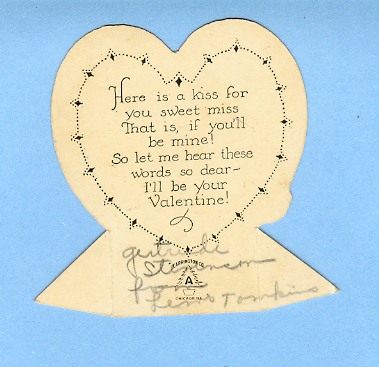 Here is a kiss for
you sweet miss
That is, if you'll
be mine!
So let me hear these
words so dear—
I'll be your
Valentine!
Gertrude
Stevenson
CARRINGTON CO.
A
from
CHICAGO, ILL.
Lewis Tompkins